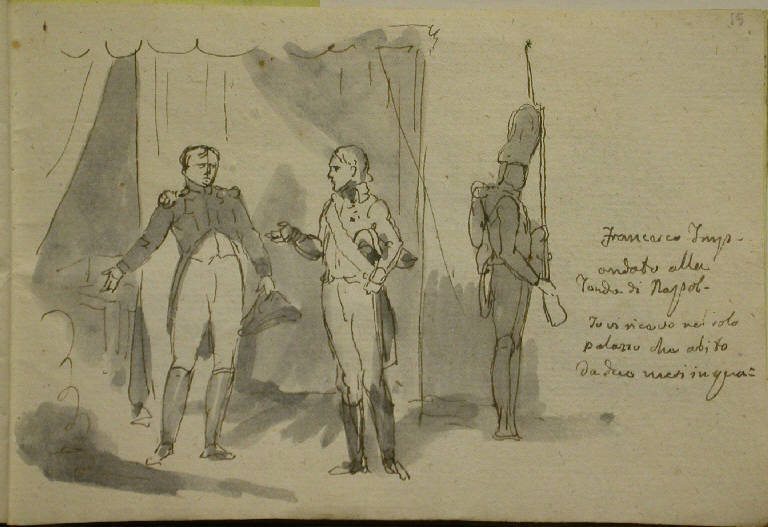 15
Francesco Imp.
andato alla
Tenda di Napol-
Io vi ricevo nel solo
palazzo che abito
da due mesi in qua=